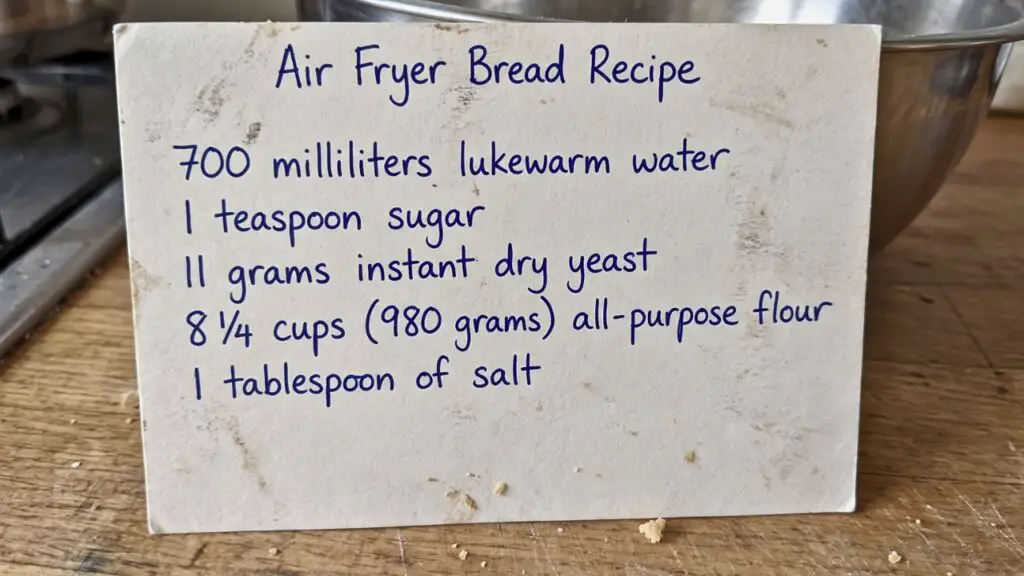 Air Fryer Bread Recipe
700 milliliters lukewarm water
1 teaspoon sugar
11 grams instant dry yeast
8 ¼ cups (980 grams) all-purpose flour
1 tablespoon of salt